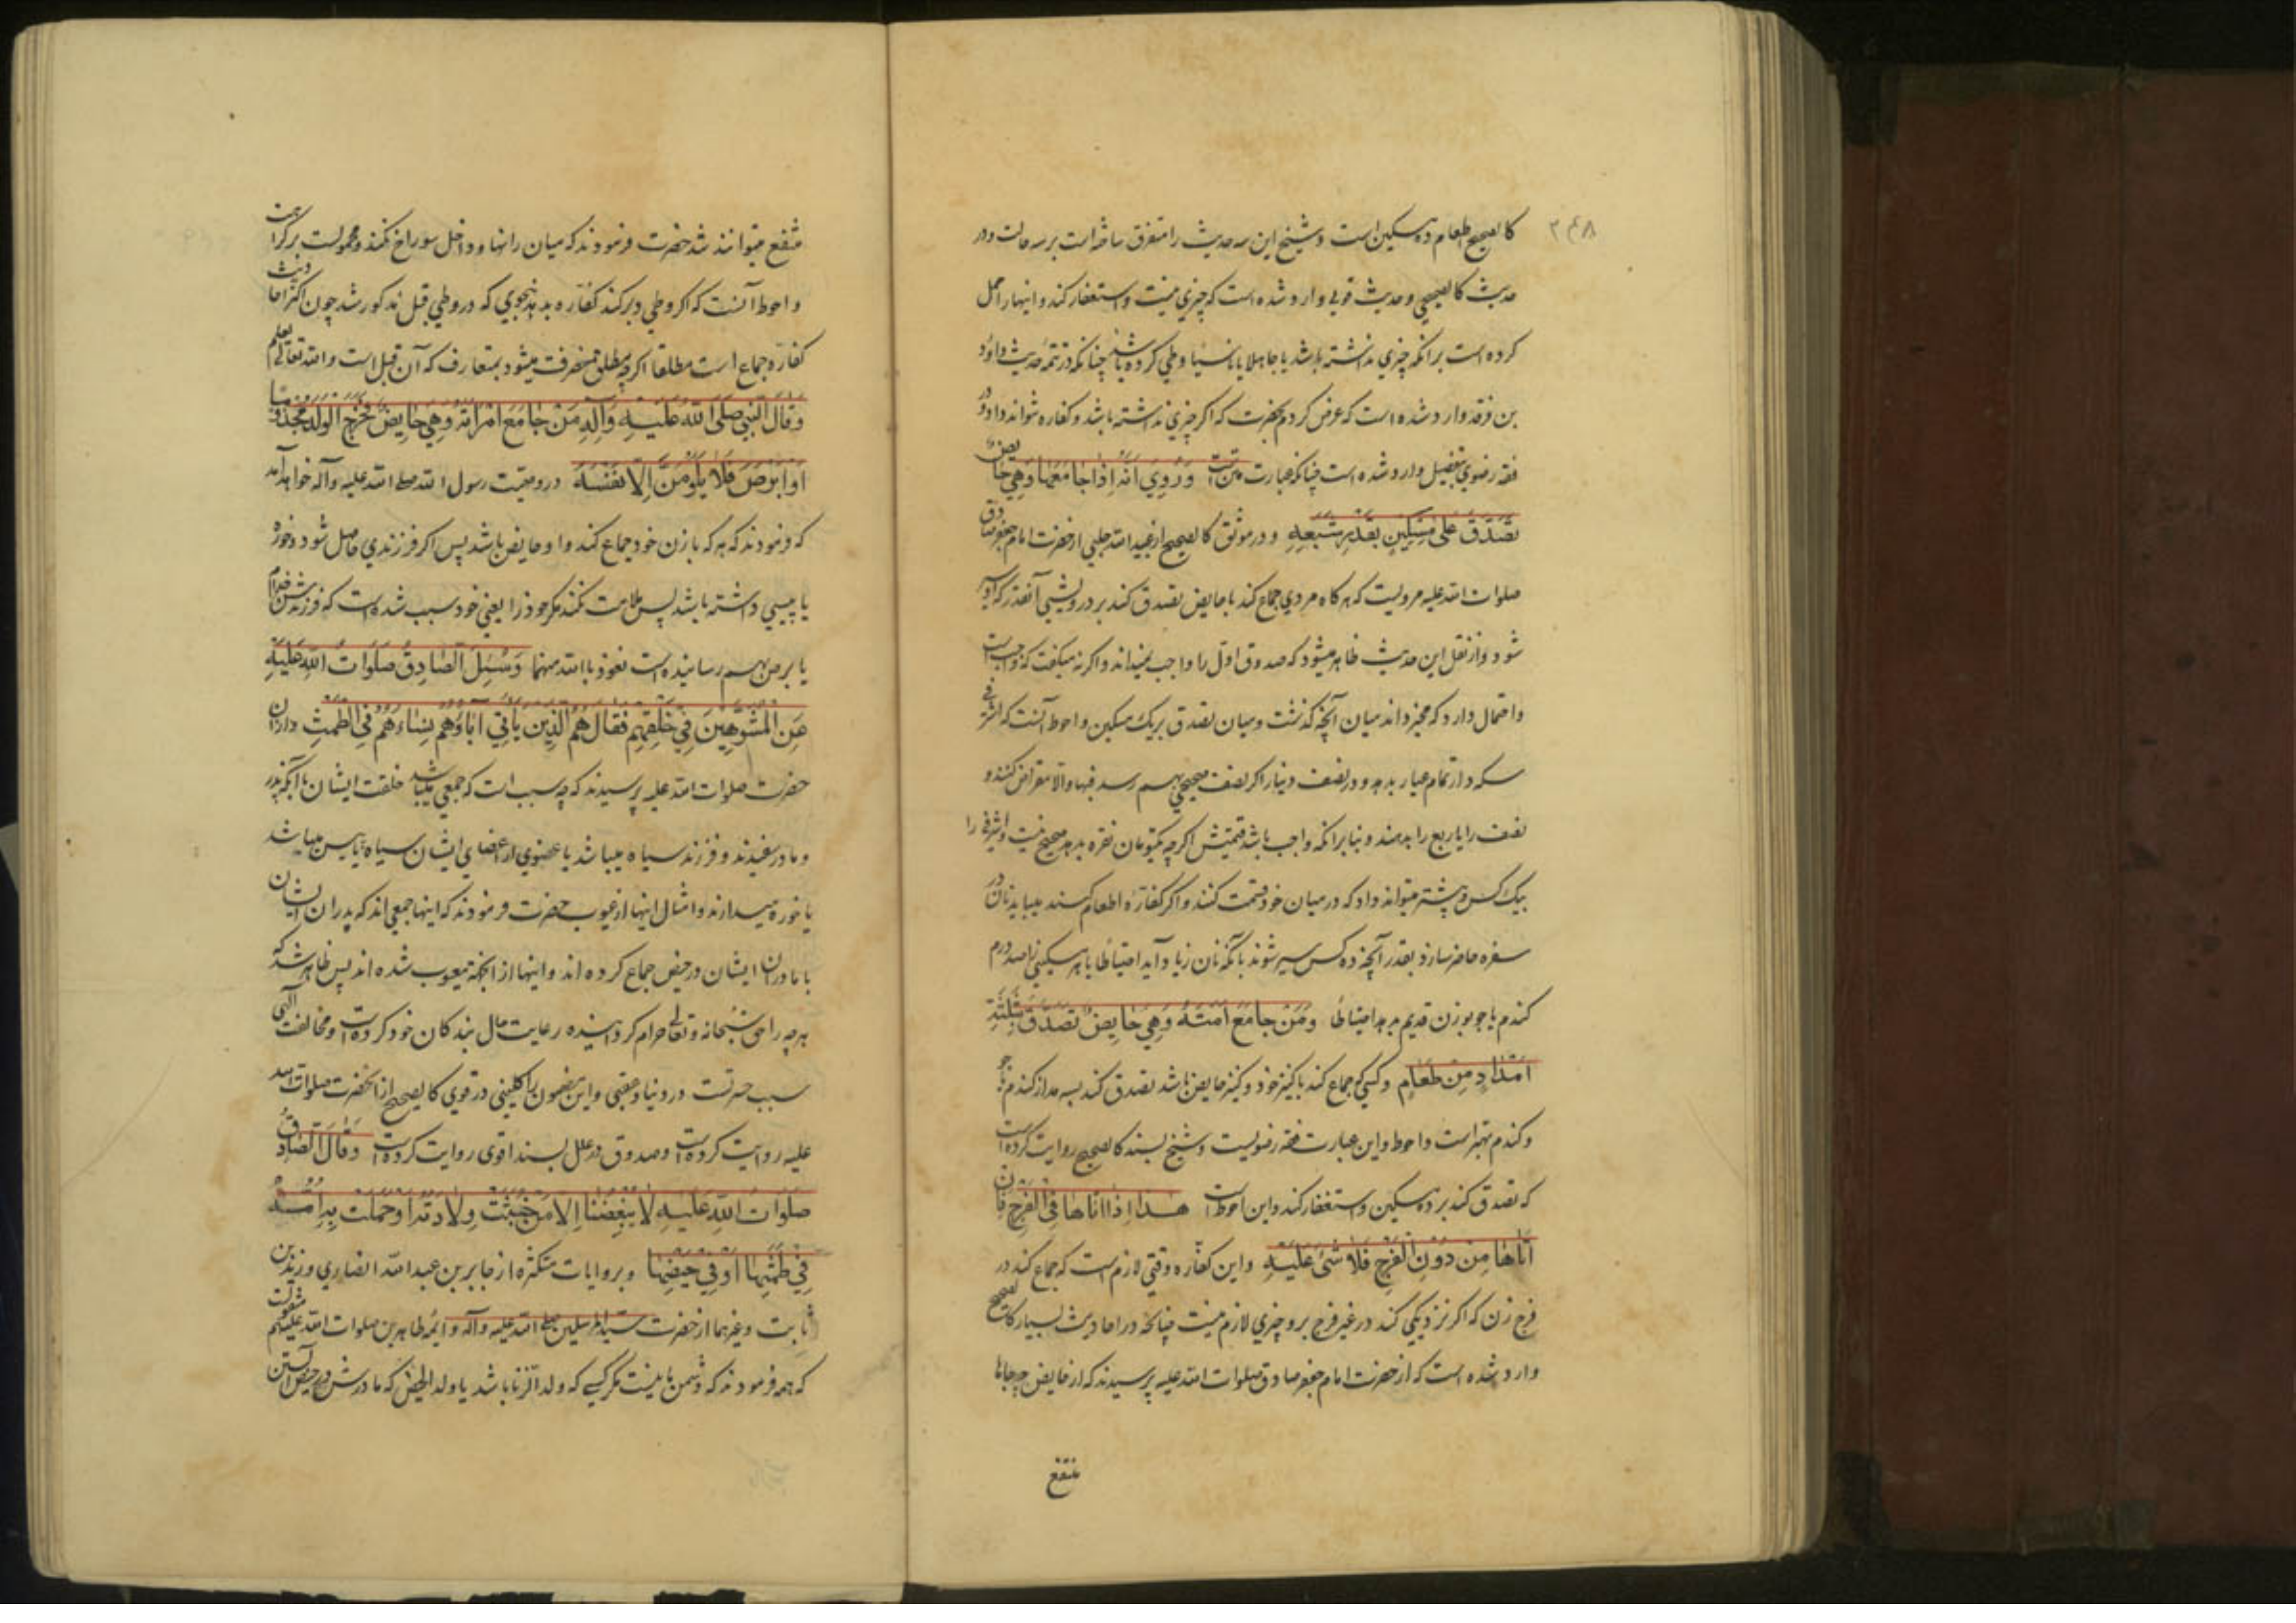 ۲۴۸
کالصحیح اطعام ده مسکین است و شیخ این سه حدیث را متفرق ساخته است بر سه حالت و در
حدیث کالصحیح و حدیث قوی وارد شده است که چیزی نیست و استغفار کند و اینها را حمل
کرده است بر آنکه چیزی نداشته باشد یا جاهلا یا ناسیا وطی کرده باشد چنانکه در تتمه حدیث داود
بن فرقد وارد شده است که عرض کردم بحضرت که اگر چیزی نداشته باشد و کفاره نتواند داد و در
فقه رضوی بتفصیل وارد شده است چنانکه عبارت متن است وَرُوِیَ اَنَّهُ اِذَا جَامَعَهَا وَهِیَ حَایِضٌ
تَصَدَّقَ عَلیٰ مِسْکِینٍ بِقَدْرِ شَبَعِهِ و در موثق کالصحیح از عبیدالله حلبی از حضرت امام جعفر صادق
صلوات الله علیه مرویست که هر گاه مردی جماع کند با حایض تصدق کند بر درویشی آنقدر که او سیر
شود و از نقل این حدیث ظاهر میشود که صدوق اول را واجب نمیداند و اگر نه میگفت که واجبست
و احتمال دارد که مخیر داند میان آنچه گذشت و میان تصدق بر یک مسکین و احوط آنست که اشرفی
سکه دار تمام عیار بدهد و در نصف دینار اگر نصف صحیحی بهم رسد فبها والا مقراض کنند و
نصف را یا ربع را بدهند و بنا بر آنکه واجب باشد قیمتش اگر چه یکتومان نقره بدهد صحیح نیست و اشرفی را
بیک کس و بیشتر میتواند داد که در میان خود قسمت کنند و اگر کفاره اطعام کنند میباید نان در
سفره حاضر سازد بقدر آنچه ده کس سیر شوند بآنکه نان زیاد آید احتیاطا یا بهر مسکینی را صد درم
گندم یا جو بوزن قدیم بدهد احتیاطا وَمَنْ جَامَعَ اَمَتَهُ وَهِیَ حَایِضٌ تَصَدَّقَ بِثَلٰثَةِ
اَمْدَادٍ مِنْ طَعَامٍ و کسی که جماع کند با کنیز خود و کنیز حایض باشد تصدق کند بسه مد از گندم یا جو
و گندم بهتر است و احوط و این عبارت فقه رضویست و شیخ بسند کالصحیح روایت کرده است
که تصدق کند بر ده مسکین و استغفار کند و این احوط است هٰذَا اِذَا اَتَاهَا فِی الْفَرْجِ فَاِنْ
اَتَاهَا مِنْ دُوْنِ الْفَرْجِ فَلَا شَیْءَ عَلَیْهِ و این کفاره وقتی لازم است که جماع کند در
فرج زن که اگر نزدیکی کند در غیر فرج بر او چیزی لازم نیست چنانچه در احادیث بسیار کالصحیح
وارد شده است که از حضرت امام جعفر صادق صلوات الله علیه پرسیدند که از حایض چه جاها
منتفع
منتفع میتوانند شد حضرت فرمودند که میان رانها و داخل سوراخ نکند و محمولست بر کراهت
و احوط آنست که اگر وطی دبر کند کفاره بدهد بنحوی که در وطی قبل مذکور شد چون اکثر احادیث
کفاره جماع است مطلقا اگر چه مطلق منصرف میشود بمتعارف که آن قبل است والله تعالی یعلم
وَقَالَ النَّبِیُّ صَلَّی اللهُ عَلَیْهِ وَآلِهِ مَنْ جَامَعَ امْرَاَتَهُ وَهِیَ حَایِضٌ فَخَرَجَ الْوَلَدُ مَجْذُوْمًا
اَوْ اَبْرَصَ فَلَا یَلُوْمَنَّ اِلَّا نَفْسَهُ در وصیت رسول الله صلی الله علیه وآله خواهد آمد
که فرمودند که هر که با زن خود جماع کند و او حایض باشد پس اگر فرزندی حاصل شود و خوره
یا پیسی داشته باشد پس ملامت نکند مگر خود را یعنی خود سبب شده است که فرزندش
یا برص بهم رسانیده است نعوذ بالله منهما وَسُئِلَ الصَّادِقُ صَلَوَاتُ اللهِ عَلَیْهِ
عَنِ الْمُشَوَّهِیْنَ فِی خَلْقِهِمْ فَقَالَ هُمُ الَّذِیْنَ یَاْتِی آبَاؤُهُمْ نِسَاءَهُمْ فِی الطَّمْثِ و از آن
حضرت صلوات الله علیه پرسیدند که چه سبب است که جمعی میباشد خلقت ایشان با آنکه پدر
و مادر سفیدند و فرزند سیاه میباشد یا عضوی از اعضای ایشان سیاه یا پیس میباشد
یا خوره میدارند و امثال اینها از عیوب حضرت فرمودند که اینها جمعی اند که پدران ایشان
با مادران ایشان در حیض جماع کرده اند و اینها از آنجهة معیوب شده اند پس ظاهر شد که
هر چه را حق سبحانه و تعالی حرام گردانیده رعایت حال بندگان خود کرده است و مخالفت الهی
سبب حسرتست در دنیا و عقبی و این مضمون را کلینی در قوی کالصحیح از آنحضرت صلوات الله
علیه روایت کرده است و صدوق در علل بسند اقوی روایت کرده است وَقَالَ الصَّادِقُ
صَلَوَاتُ اللهِ عَلَیْهِ لَا یُبْغِضُنَا اِلَّا مَنْ خَبُثَتْ وِلَادَتُهُ اَوْ حَمَلَتْ بِهِ اُمُّهُ
فِی طَمْثِهَا اَوْ فِی حَیْضِهَا و بروایات متکثره از جابر بن عبدالله انصاری و زید بن
ثابت و غیرهما از حضرت سید المرسلین صلی الله علیه وآله و ائمه طاهرین صلوات الله علیهم منقولست
که همه فرمودند که دشمن ما نیست مگر کسی که ولد الزنا باشد یا ولد الحیض که مادرش در حیض آبستن